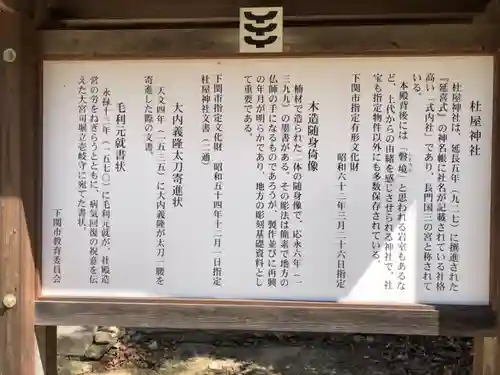 杜屋神社
杜屋神社は、延長五年（九二七）に撰進された
『延喜式』の神名帳に社名が記載されている社格
高い「式内社」であり、長門国三の宮と称されて
いる。
本殿背後には「磐境」と思われる岩室もあるな
ど、上代からの由緒を感じさせられる神社で、社
宝も指定物件以外にも多数保存されている。
下関市指定有形文化財
昭和六十二年三月二十六日指定
木造随身倚像
楠材で造られた二体の随身像で、応永六年（一
三九九）の墨書がある。その彫法は簡素で地方の
仏師の手になるものであろうが、製作並びに再興
の年月が明らかであり、地方の彫刻基礎資料とし
て重要である。
下関市指定文化財 昭和五十四年十二月一日指定
杜屋神社文書（二通）
大内義隆太刀寄進状
天文四年（一五三五）に大内義隆が太刀一腰を
寄進した際の文書。
毛利元就書状
永禄十三年（一五七〇）に毛利元就が、社殿造
営の労をねぎらうとともに、病気回復の祝意を伝
えた大宮司堀立壱岐守に宛てた書状。
下関市教育委員会